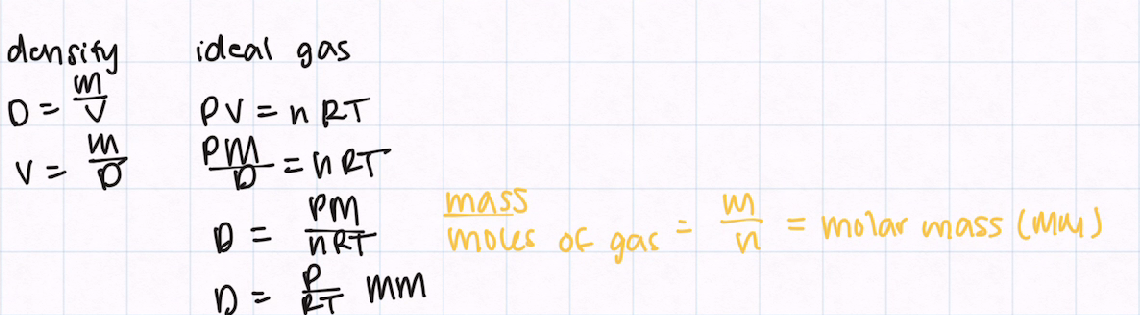 density
D = m/V
V = m/D
ideal gas
PV = nRT
PM/D = nRT
D = PM/nRT
D = P/RT MM
mass/moles of gas = m/n = molar mass (MM)